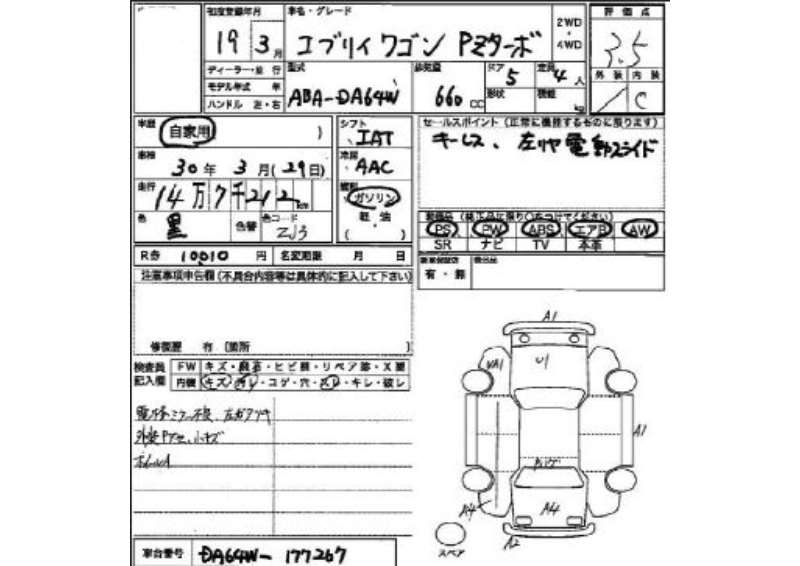 初度登録年月 車名・グレード 2WD・4WD 評価点
19 3月 エブリイワゴン PZターボ 3.5
ディーラー・並行 型式 排気量 ドア 定員 外装 内装
モデル年式 年 ABA-DA64W 660cc 形状 5 4人 C
ハンドル 左・右
車歴 自家用 シフト IAT セールスポイント(正常に機能するものに限ります)
車検 30年3月(29日) 冷房 AAC キーレス、左リヤ電動スライド
走行 14万7千212km 燃料 ガソリン
軽油
色 黒 色替 色コード ZJ3
装備品(純正品に限り○をつけてください)
PS PW ABS エアB AW
SR ナビ TV 本革
R券 10010円 名変期限 月 日
有・無
注意事項申告欄(不具合内容等は具体的に記入して下さい)
修復歴 有(箇所 )
検査員記入欄 FW キズ・飛石・ヒビ割・リペア跡・X要
内装 キズ・汚レ・コゲ・穴・スレ・キレ・破レ
A1
U1
A1
A4
A4
A2
スペア
車台番号 DA64W-177267